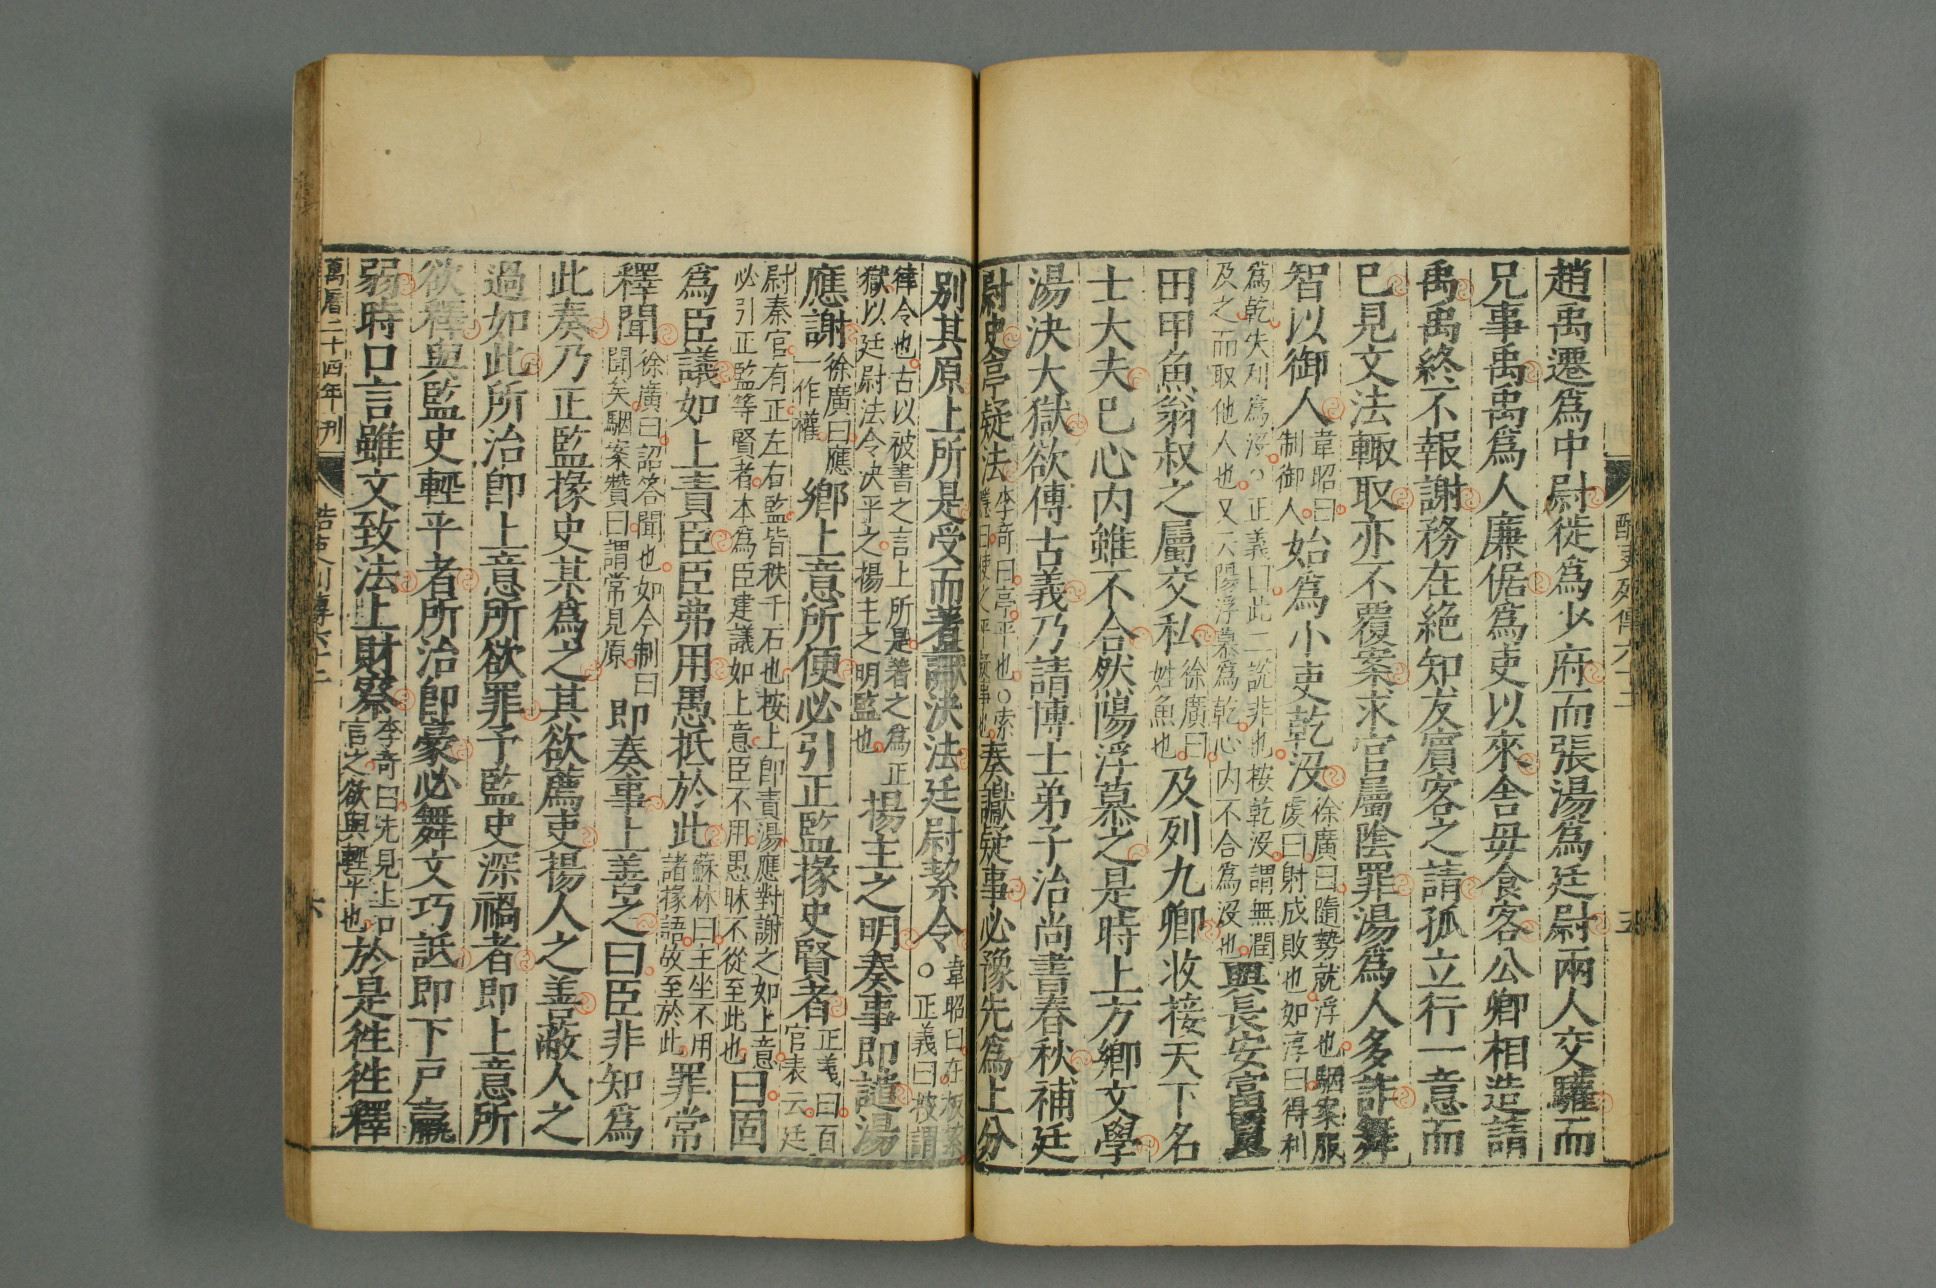 酷吏列傳六十二
五
趙禹遷爲中尉徙爲少府而張湯爲廷尉兩人交驩而
兄事禹禹爲人廉倨爲吏以來舍毋食客公卿相造請
禹禹終不報謝務在絶知友賓客之請孤立行一意而
已見文法輙取亦不覆案求官屬陰罪湯爲人多詐舞
智以御人韋昭曰制御人始爲小吏乾没徐廣曰隨勢就浮也駰案服虔曰射成敗也如淳曰得利
爲乾失利爲没○正義曰此二說非也按乾没謂無潤及之而取他人也又云陽浮慕爲乾心内不合爲没也與長安富賈
田甲魚翁叔之屬交私徐廣曰姓魚也及列九卿收接天下名
士大夫已心内雖不合然陽浮慕之是時上方鄉文學
湯決大獄欲傅古義乃請博士弟子治尚書春秋補廷
尉史亭疑法李奇曰亭平也○索隱曰使之平疑事也奏讞疑事必豫先爲上分
別其原上所是受而著讞決法廷尉絜令韋昭曰在板絜○正義曰按謂
律令也古以被書之言上所是著之爲正獄以廷尉法令决平之揚主之明監也揚主之明奏事即譴湯
應謝徐廣曰應一作權鄉上意所便必引正監掾史賢者正義曰百官表云廷
尉秦官有正左右監皆秩千石也按上即責湯應對謝之如上意必引正監等賢者本爲臣建議如上意臣不用愚昧不從至此也曰固
爲臣議如上責臣臣弗用愚抵於此蘇林曰主坐不用諸掾語故至於此罪常
釋聞徐廣曰詔答聞也如今制曰聞矣駰案瓚曰謂常見原即奏事上善之曰臣非知爲
此奏乃正監掾史某爲之其欲薦吏揚人之善蔽人之
過如此所治即上意所欲罪予監史深禍者即上意所
欲釋與監史輕平者所治即豪必舞文巧詆即下户羸
弱時口言雖文致法上財察李奇曰先見上口言之欲與輕平也於是徃徃釋
萬曆二十四年刊
酷吏列傳六十二
六